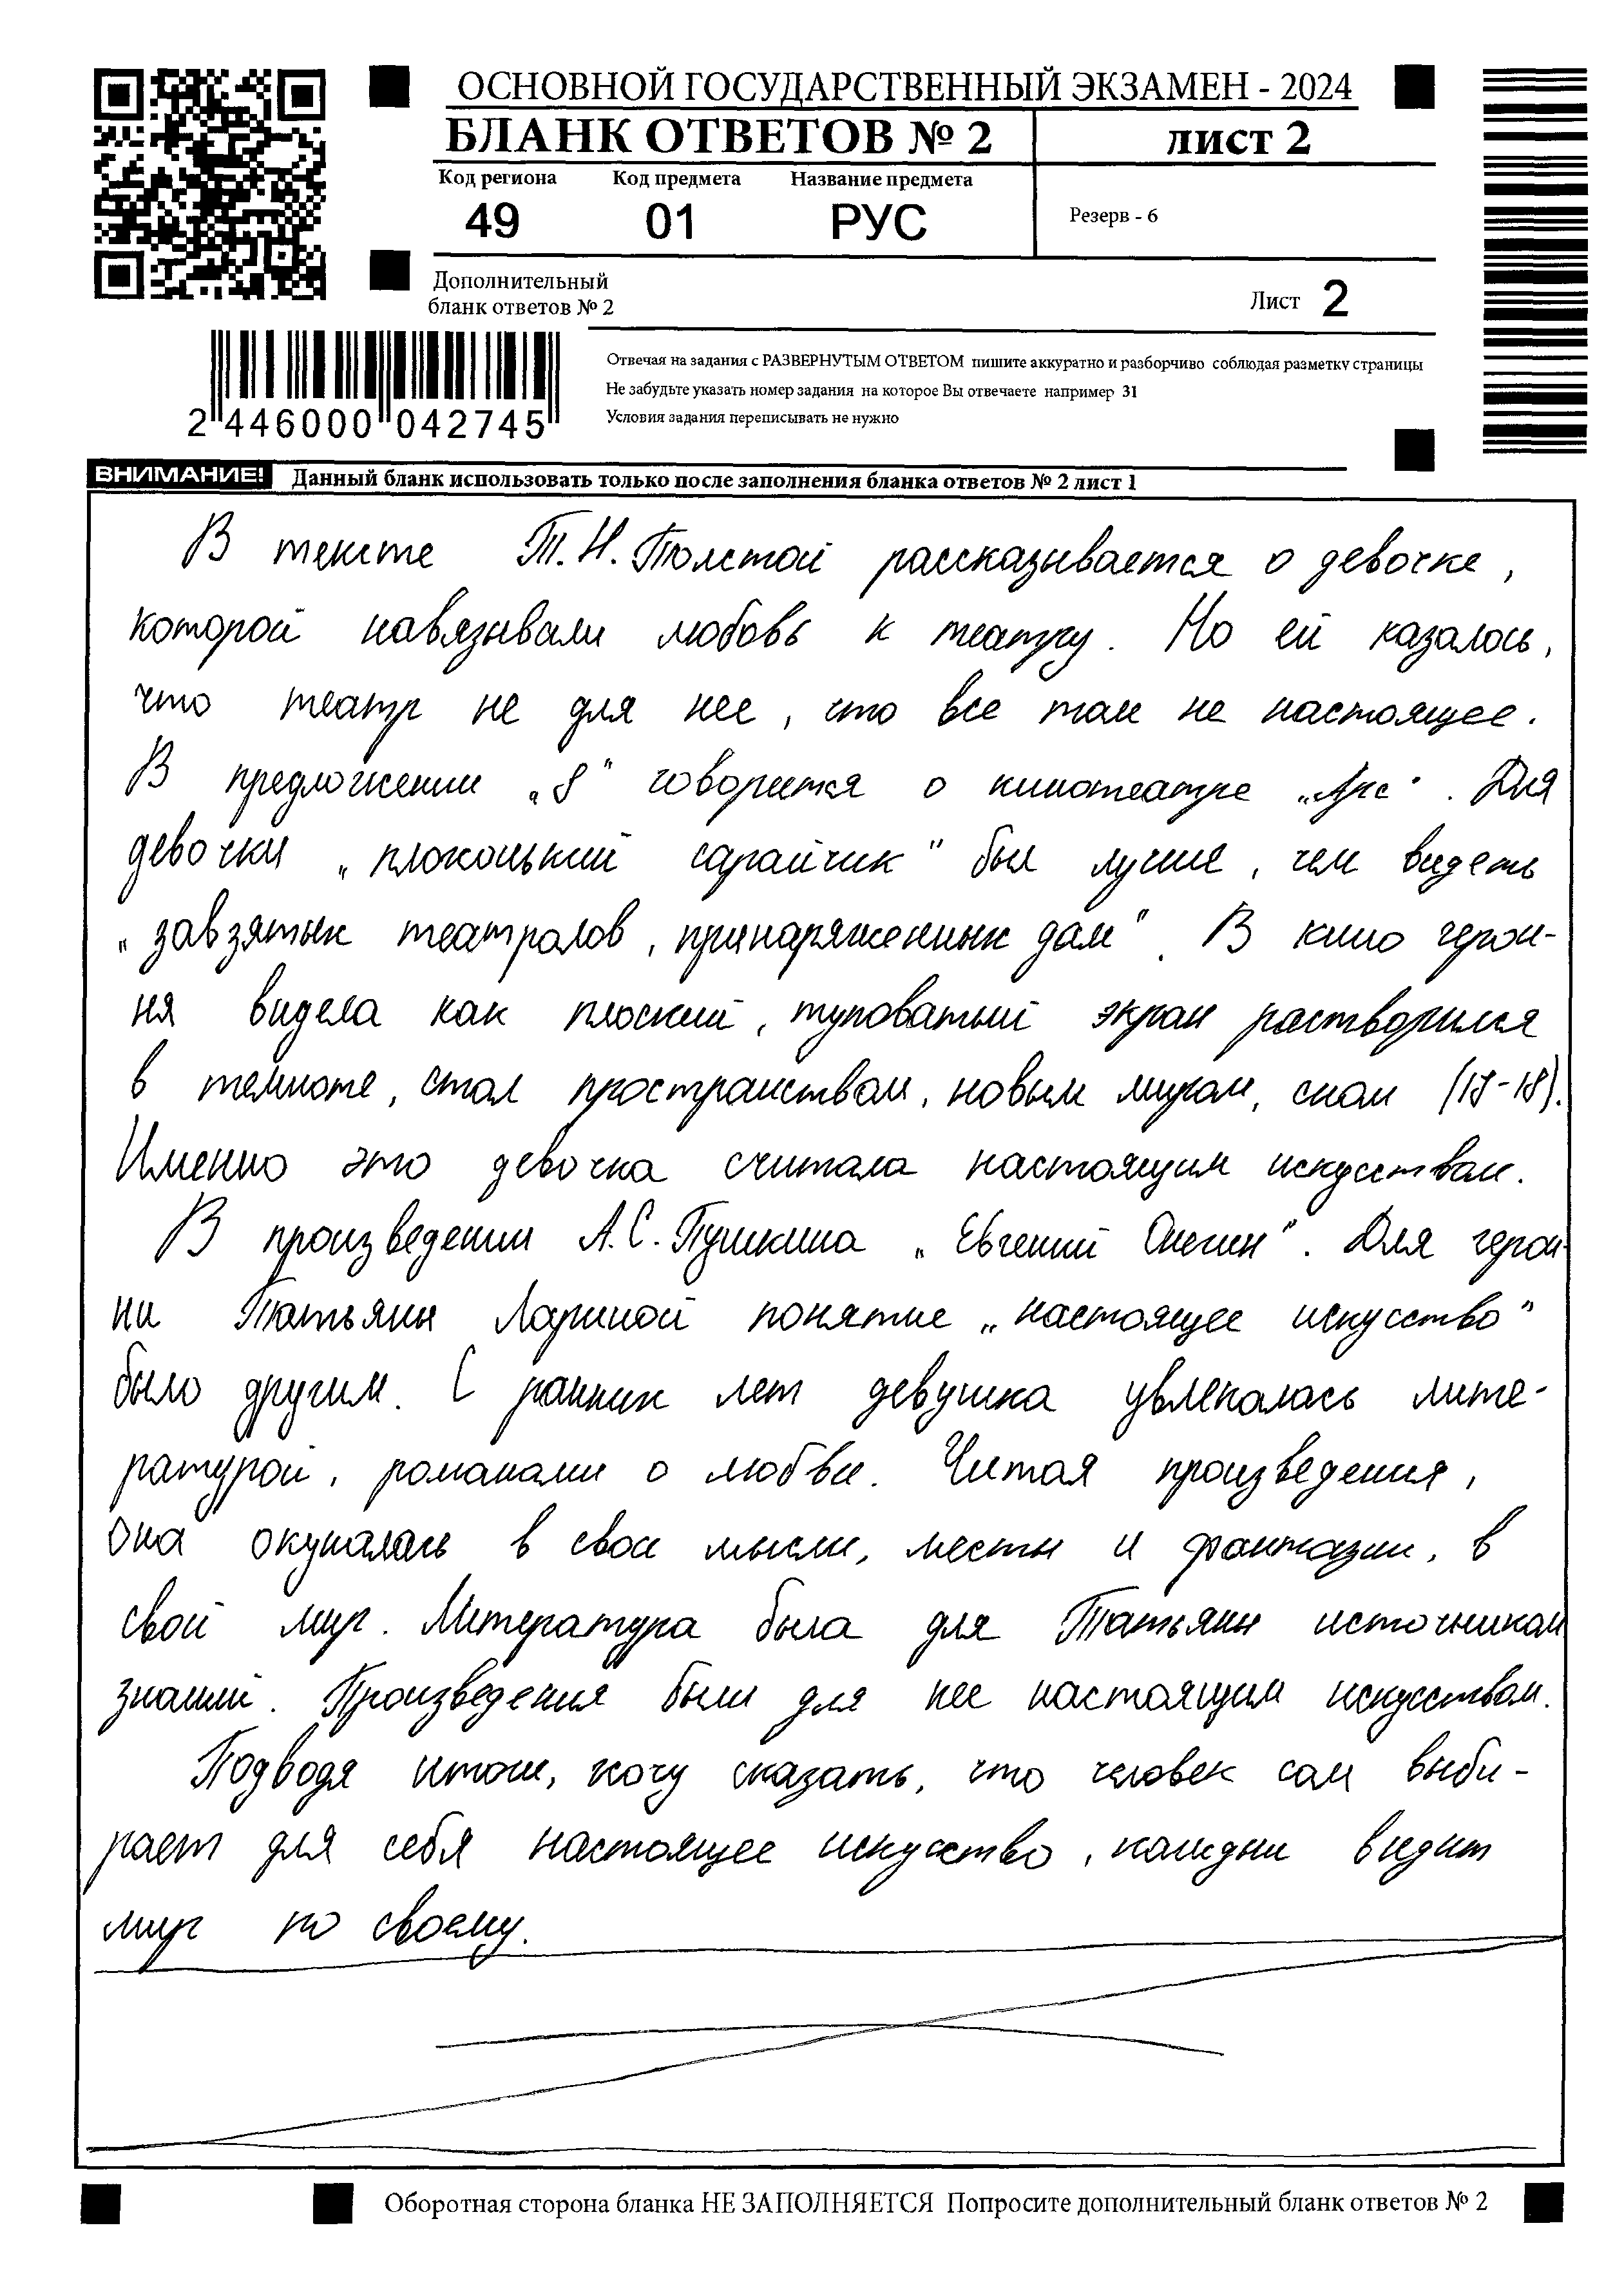 ОСНОВНОЙ ГОСУДАРСТВЕННЫЙ ЭКЗАМЕН - 2024
БЛАНК ОТВЕТОВ № 2
лист 2
Код региона
Код предмета
Название предмета
49
01
РУС
Резерв - 6
Дополнительный
бланк ответов № 2
Лист 2
Отвечая на задания с РАЗВЕРНУТЫМ ОТВЕТОМ пишите аккуратно и разборчиво соблюдая разметку страницы
Не забудьте указать номер задания на которое Вы отвечаете например 31
Условия задания переписывать не нужно
2 446000 042745
ВНИМАНИЕ! Данный бланк использовать только после заполнения бланка ответов № 2 лист 1
В тексте Т.Н.Толстой рассказывается о девочке,
которой навязывали любовь к театру. Но ей казалось,
что театр не для нее, что все там не настоящее.
В предложении „8" говорится о кинотеатре „Арс". Для
девочки „плохонький сарайчик" был лучше, чем видеть
„завзятых театралов, принаряженных дам". В кино герои-
ня видела как плоский, туповатый экран растворился
в темноте, стал пространством, новым миром, сном (17-18).
Именно это девочка считала настоящим искусством.
В произведении А.С.Пушкина „Евгений Онегин". Для герои-
ни Татьяны Лариной понятие „настоящее искусство"
было другим. С ранних лет девушка увлекалась лите-
ратурой, романами о любви. Читая произведения,
она окуналась в свои мысли, мечты и фантазии, в
свой мир. Литература была для Татьяны источником
знаний. Произведения были для нее настоящим искусством.
Подводя итоги, хочу сказать, что человек сам выби-
рает для себя настоящее искусство, каждый видит
мир по своему.
Оборотная сторона бланка НЕ ЗАПОЛНЯЕТСЯ Попросите дополнительный бланк ответов № 2